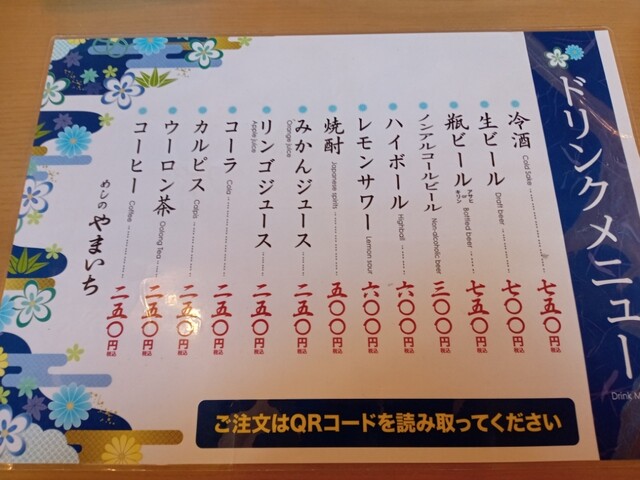 ドリンクメニュー
Drink M
冷酒 Cold Sake 七五〇円税込
生ビール Draft beer 七〇〇円税込
瓶ビール アサヒ or キリン Bottled beer 七五〇円税込
ノンアルコールビール Non-alcoholic beer 三〇〇円税込
ハイボール Highball 六〇〇円税込
レモンサワー Lemon sour 六〇〇円税込
焼酎 Japanese spirits 五〇〇円税込
みかんジュース Orange juice 二五〇円税込
リンゴジュース Apple juice 二五〇円税込
コーラ Cola 二五〇円税込
カルピス Calpis 二五〇円税込
ウーロン茶 Oolong Tea 二五〇円税込
コーヒー Coffee 二五〇円税込
めしの やまいち
ご注文はQRコードを読み取ってください